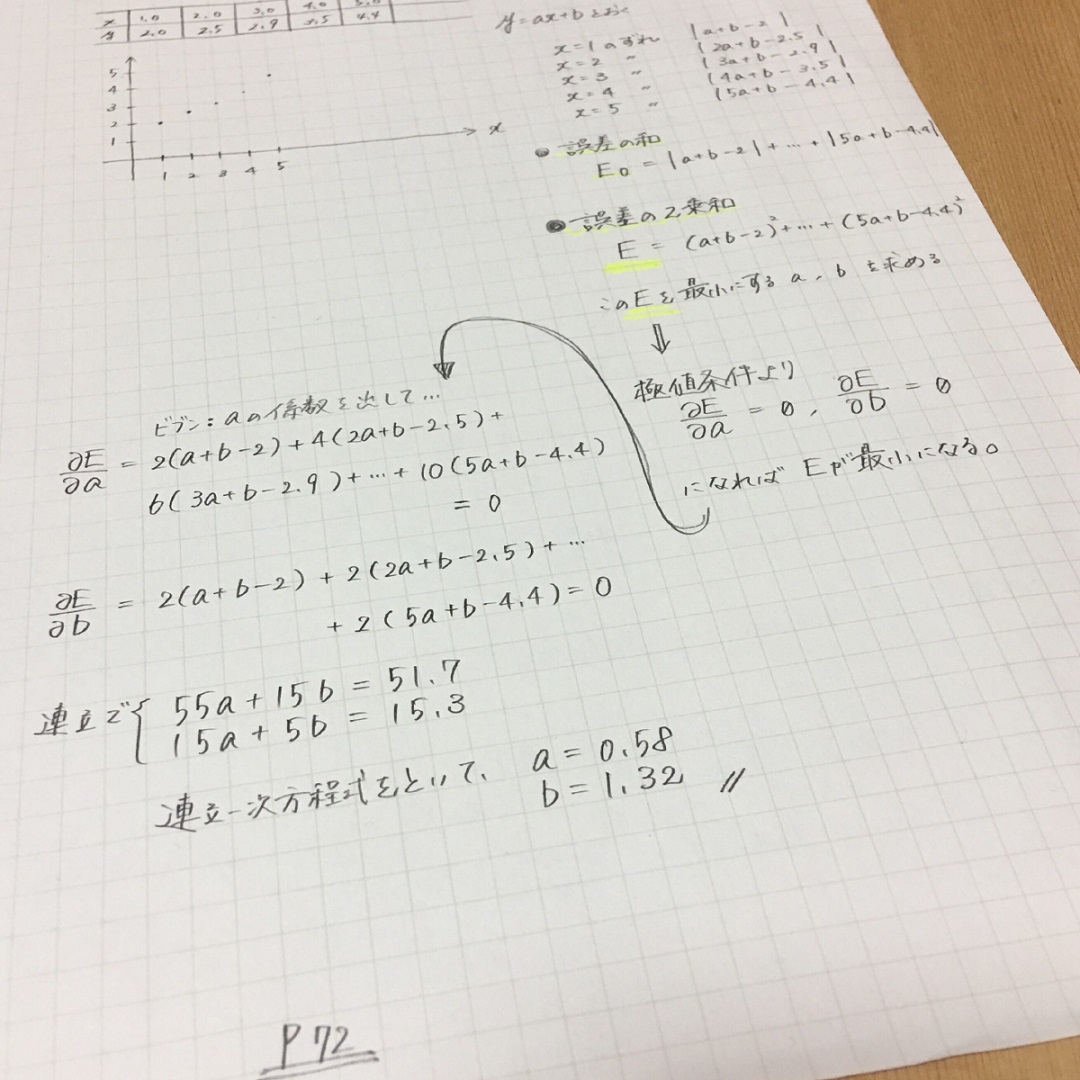 x 1.0 2.0 3.0 4.0 5.0
y 2.0 2.5 2.9 3.5 4.4
5
4
3
2
1
x
1 2 3 4 5
y=ax+bとおく
x=1のずれ |a+b-2|
x=2 〃 |2a+b-2.5|
x=3 〃 |3a+b-2.9|
x=4 〃 |4a+b-3.5|
x=5 〃 |5a+b-4.4|
● 誤差の和
E₀ = |a+b-2|+…+|5a+b-4.4|
● 誤差の2乗和
E = (a+b-2)²+…+(5a+b-4.4)²
このEを最小にする a, b を求める
⇓
極値条件より
∂E/∂a = 0, ∂E/∂b = 0
になればEが最小になる。
ビブン:aの係数を出して…
∂E/∂a = 2(a+b-2)+4(2a+b-2.5)+
6(3a+b-2.9)+…+10(5a+b-4.4)
= 0
∂E/∂b = 2(a+b-2)+2(2a+b-2.5)+…
+2(5a+b-4.4)=0
連立で{ 55a+15b = 51.7
15a+5b = 15.3
連立一次方程式をといて、 a=0.58
b=1.32 //
P72